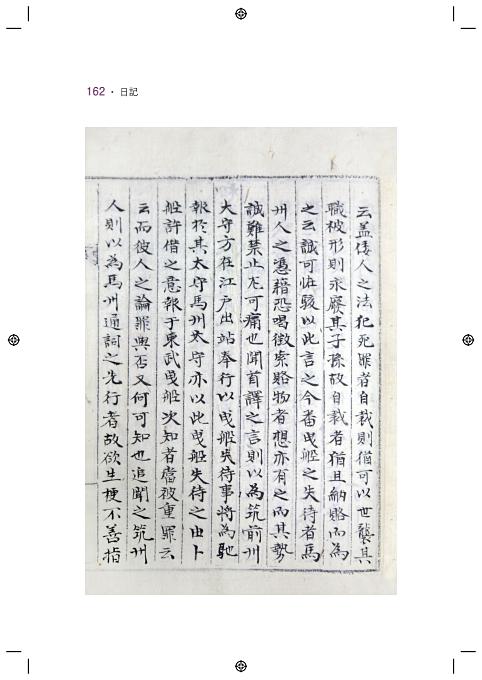 162 · 日記
云盖倭人之法犯死罪者自裁則猶可以世襲其
職被形則永廢其子孫故自裁者猶且納賂而為
之云誠可怪駭以此言之今番曳船之失待者馬
州人之憑藉恐喝徵索賂物者想亦有之而其勢
誠難禁止尤可痛也聞首譯之言則以為筑前州
大守方在江戶出站奉行以曳船失待事將為馳
報於其太守馬州太守亦以此曳船失待之由卜
船許借之意報于東武曳船次知者當被重罪云
云而彼人之論罪與否又何可知也追聞之筑州
人則以為馬州通詞之先行者故欲生梗不善指